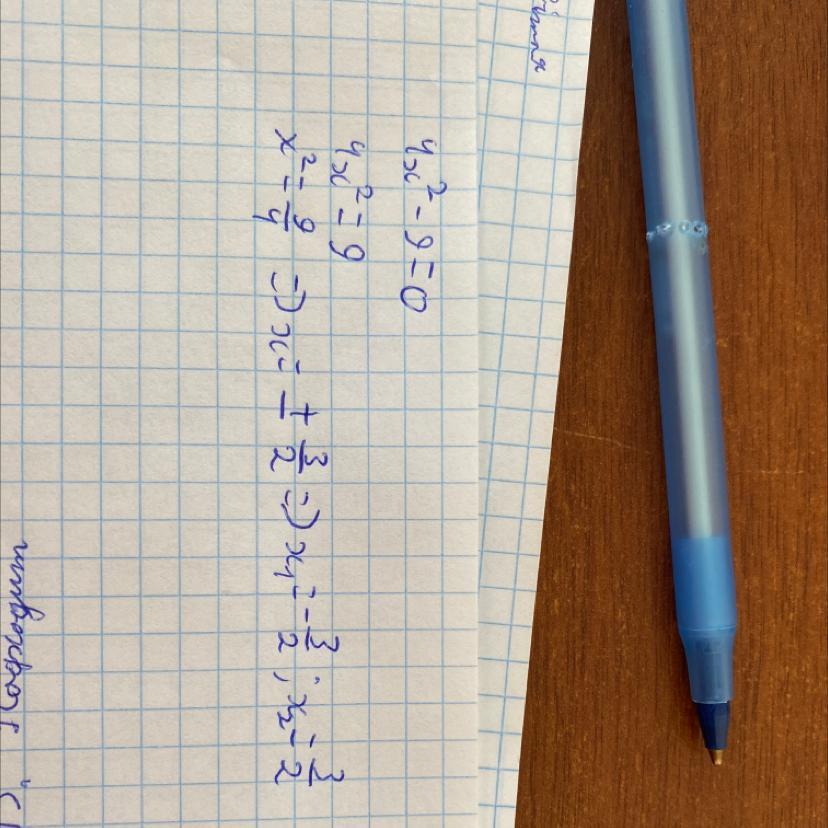 4x² - 9 = 0
4x² = 9
x² = 9/4 => x = ± 3/2 => x₁ = - 3/2 ; x₂ = 3/2